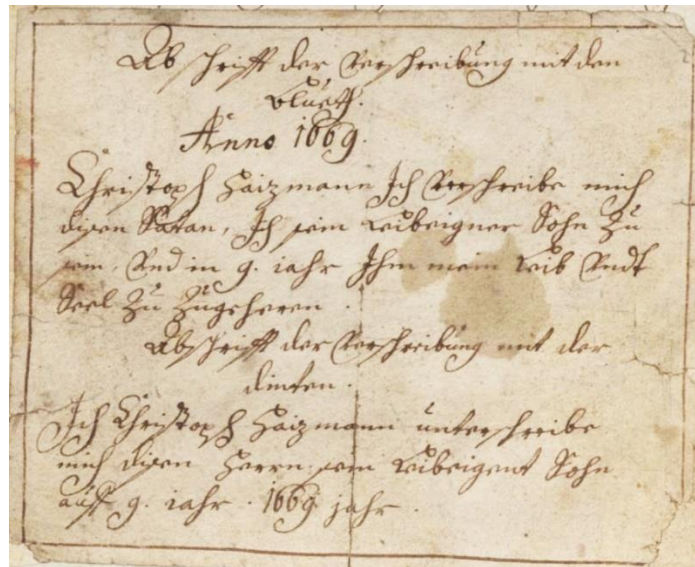 Abschrifft der Verschreibung mit den
bluett.
Anno 1669.
Christoph Haizmann Ich Verschreibe mich
disen Satan, Ich sein Leibeigner Sohn Zu
sein, Vnd in 9. iahr Ihm mein Leib Vndt
Seel Zu Zugeheren.
Abschrifft der Verschreibung mit der
dinten.
Ich Christoph Haizmann unterschreibe
mich disen Herrn sein Leibeigent Sohn
auff 9. iahr. 1669 jahr.